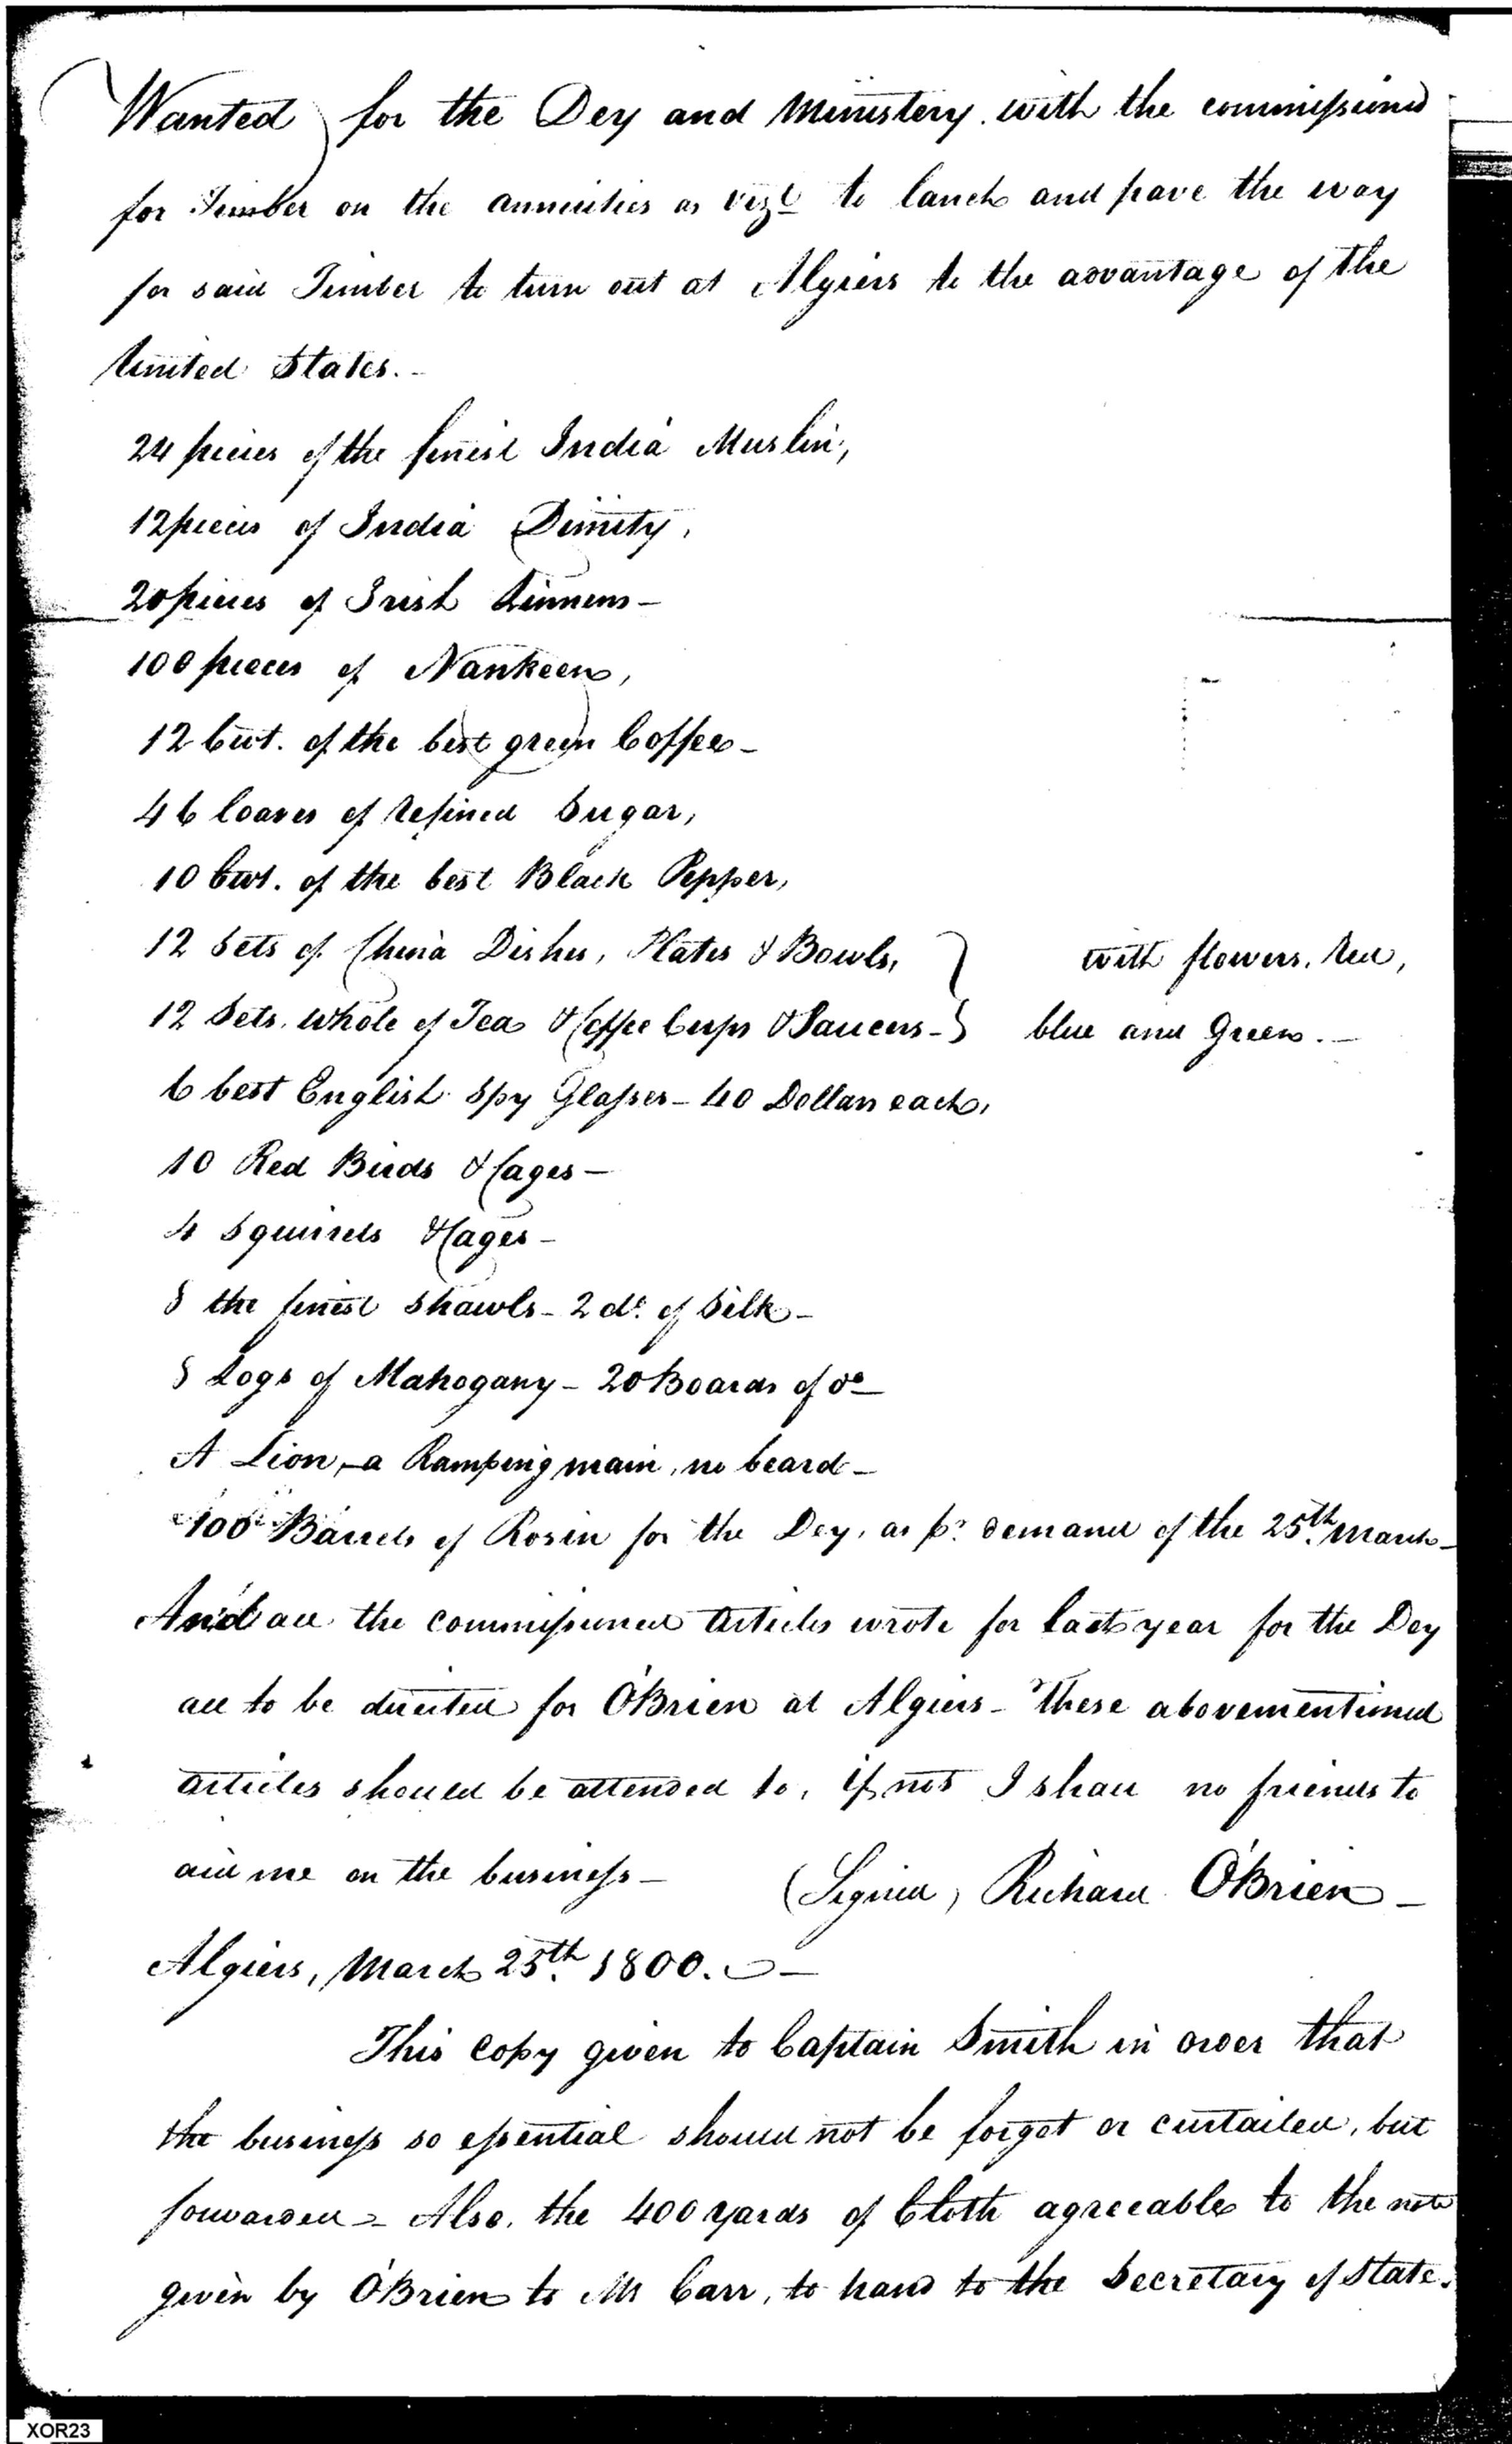 Wanted for the Dey and Ministery with the commissioned
for Timber on the annuities as vizt to lanch and pave the way
for said Timber to turn out at Algiers to the advantage of the
United States. -
24 pieces of the finest India Muslin,
12 pieces of India Dimity,
20 pieces of Irish Linnens -
100 pieces of Nankeen,
12 Cwt. of the best green Coffee -
46 loaves of refined Sugar,
10 Cwt. of the best Black Pepper,
12 Sets of China Dishes, Plates & Bowls, } with flowers, Red,
12 Sets, whole of Tea & Coffee Cups & Saucers - } blue and Green. -
6 best English Spy Glasses - 40 Dollars each,
10 Red Birds & Cages -
4 Squirrels & Cages -
8 the finest Shawls - 2 do. of Silk -
8 Logs of Mahogany - 20 Boards of do -
A Lion, - a Ramping main, no beard -
100 Barrels of Rosin for the Dey, as pr. demand of the 25th. March -
And all the commissioned articles wrote for last year for the Dey
all to be directed for O'Brien at Algiers - These abovementioned
articles should be attended to, if not I shall no friends to
aid me on the business - (Signed) Richard O'Brien -
Algiers, March 25th. 1800. -
This copy given to Captain Smith in order that
the business so essential should not be forgot or curtailed, but
forwarded = Also, the 400 yards of Cloth agreeable to the note
given by O'Brien to Mr Carr, to hand to the Secretary of State.
XOR23